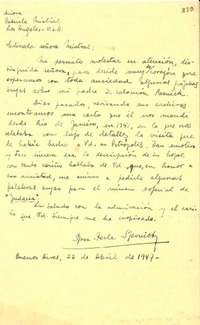 830
Señora
Gabriela Mistral
Los Angeles - U.S.A.
Estimada señora Mistral:
Me permito molestar su atención, dis-
tinguida señora, para decirle
esperamos con toda ansiedad algunas palabras
suyas sobre mi padre
Días pasados, revisando sus archivos
encontramos una carta que él nos mandó
desde Río de Janeiro, en 1941, en la que nos
relataba con lujo de detalles la visita que
le había hecho a Vd. en Petrópolis. Tan emotiva
y era la descripción de su hogar,
con tanto cariño hablaba de Vd. que, en honor a
esa amistad, me animo a pedirle algunas
palabras suyas para el número especial de
"Judaica".
La saludo con la admiración y el cari-
ño que Vd. siempre me ha inspirado.
Buenos Aires, 22 de Abril de 1947.-